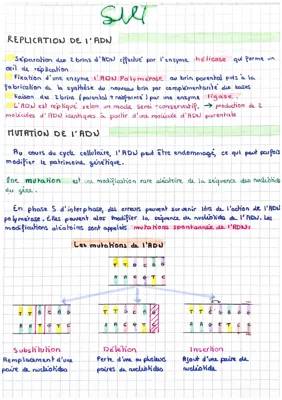 SVT
REPLICATION DE L'ADN
Séparation des 2 brins d'ADN effectué par l'enzyme hélicase qui forme un
œil de réplication.
Fixation d'une enzyme l'ADN Polymérase au brin parental puis à la
fabrication de la synthèse du nouveau brin par complémentarité des bases
Liaison des 2 brins (parental + néoformé) par une enzyme ligase.
L'ADN est répliqué selon un mode semi-conservatif. → production de 2
molécules d'ADN identiques à partir d'une molécule d'ADN parentale
MUTATION DE L'ADN
Au cours du cycle cellulaire, l'ADN peut être endommagé, ce qui peut parfois
modifier le patrimoine génétique.
Une mutation est une modification rare aléatoire de la séquence des nucléotides
du gène.
En phase S d'interphase, des erreurs peuvent survenir lors de l'action de l'ADN
polymérase. Elles peuvent alors modifier la séquence de nucléotides de l'ADN. Les
modifications aléatoires sont appelés mutations spontanées de l'ADN.
Les mutations de l'ADN
Substitution Délétion Insertion
Remplacement d'une Perte d'une ou plusieurs Ajout d'une paire de
paire de nucléotides paires de nucléotides nucléotide